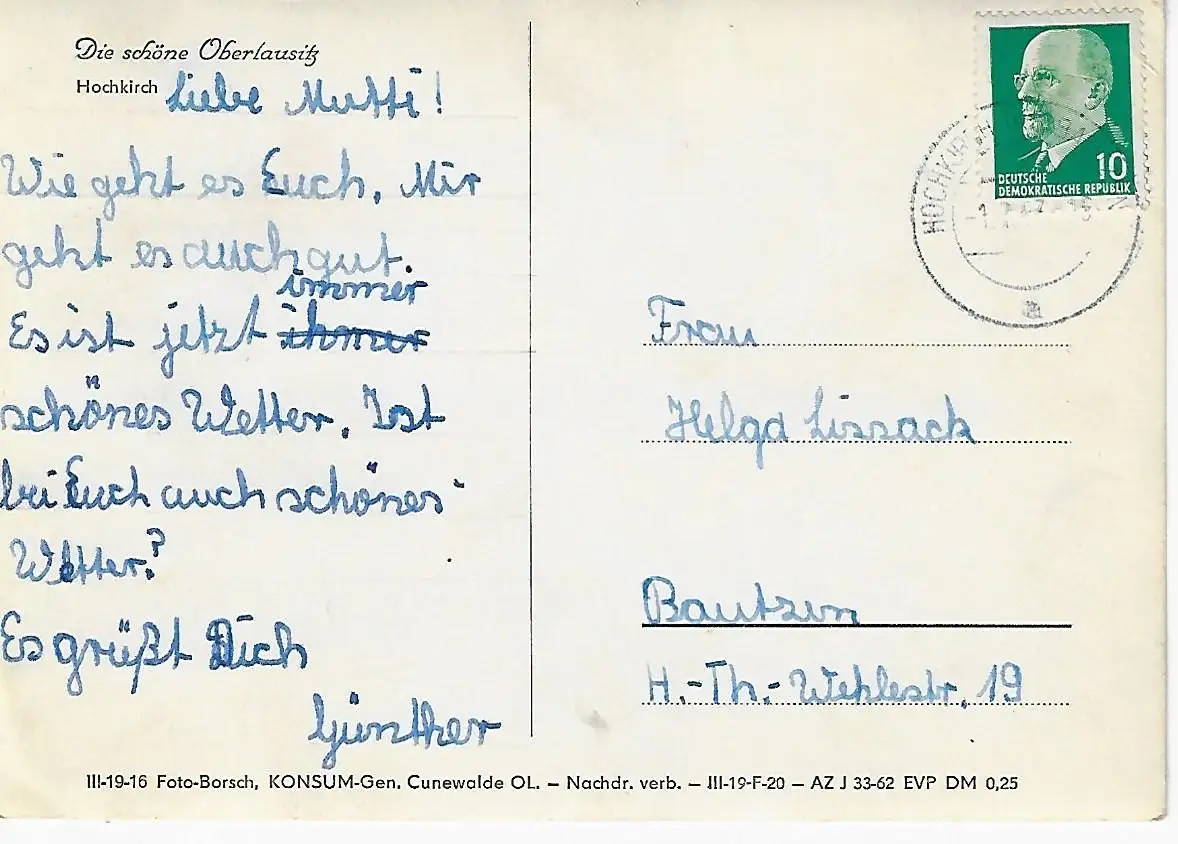 Die schöne Oberlausitz
Hochkirch
Liebe Mutti!
Wie geht es Euch. Mir
geht es auch gut.
immer
Es ist jetzt ihmer
schönes Wetter. Ist
bei Euch auch schönes
Wetter?
Es grüßt Dich
Günther
10
DEUTSCHE
DEMOKRATISCHE REPUBLIK
HOCHKIRCH
Frau
Helga Lissack
Bautzen
H.-Th.-Wehlestr. 19
III-19-16 Foto-Borsch, KONSUM-Gen. Cunewalde OL. – Nachdr. verb. – III-19-F-20 – AZ J 33-62 EVP DM 0,25